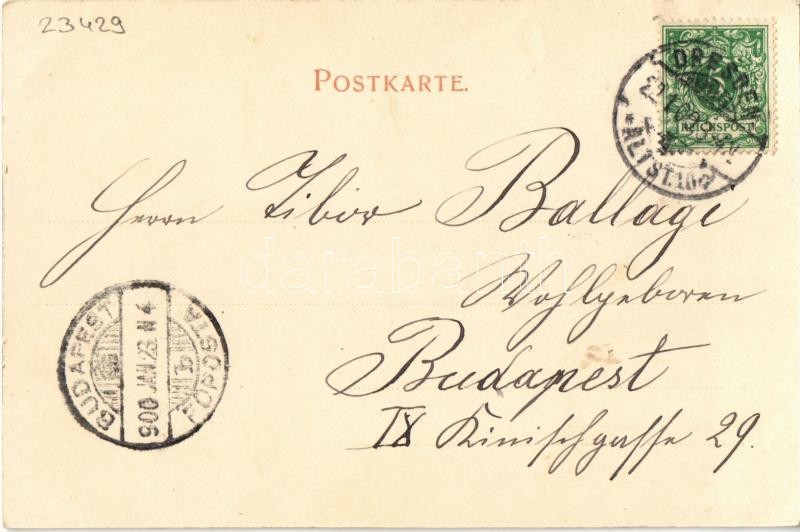 23429
POSTKARTE.
DRESDEN
ALTST. 10
5
REICHSPOST
Herrn Tibor Ballagi
Wohlgeboren
Budapest
IX Kinischgasse 29.
BUDAPEST
900 JAN 23 N 4
FŐPOSTA
darabanth